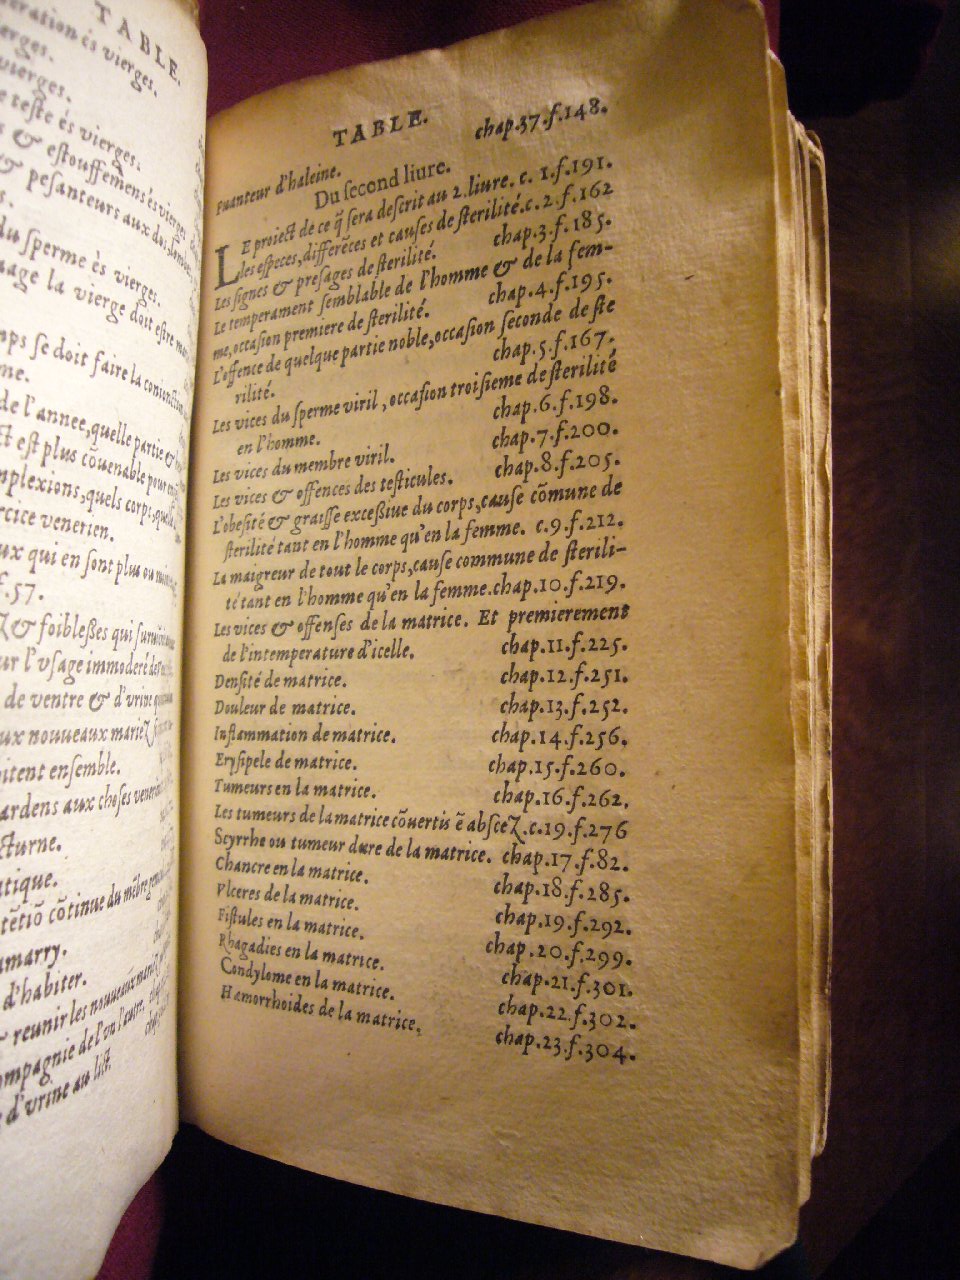 TABLE.
vierges.
vierges.
teste és vierges.
& estouffemens és vierges
& pesanteurs aux
du sperme és vierges.
la vierge doit estre
se doit faire la
me.
de l'annee, quelle partie &
est plus cõuenable pour
quels corps,
venerien.
qui en sont plus ou
f.57.
& foibleßes qui
l'vsage immoderé
de ventre & d'vrine
nouueaux mariez
ensemble.
ardens aux choses
cturne.
cõtinue du
d'habiter.
reunir les nouueaux
de l'vn l'autre.
d'vrine au lict.
TABLE.
Puanteur d'haleine. chap.37.f.148.
Du second liure.
LE proiect de ce q̃ sera descrit au 2. liure. c. 1.f.191.
les especes, differẽces et causes de sterilité.c.2.f.162
Les signes & presages de sterilité. chap.3.f.185.
Le temperament semblable de l'homme & de la fem-
me, occasion premiere de sterilité. chap.4.f.195.
L'offence de quelque partie noble, occasion seconde de ste
rilité. chap.5.f.167.
Les vices du sperme viril, occasion troisieme de sterilité
en l'homme. chap.6.f.198.
Les vices du membre viril. chap.7.f.200.
Les vices & offences des testicules. chap.8.f.205.
L'obesité & graisse exceßiue du corps, cause cõmune de
sterilité tant en l'homme qu'en la femme. c.9.f.212.
La maigreur de tout le corps, cause commune de sterili-
té tant en l'homme qu'en la femme.chap.10.f.219.
Les vices & offenses de la matrice. Et premierement
de l'intemperature d'icelle. chap.11.f.225.
Densité de matrice. chap.12.f.251.
Douleur de matrice. chap.13.f.252.
Inflammation de matrice. chap.14.f.256.
Erysipele de matrice. chap.15.f.260.
Tumeurs en la matrice. chap.16.f.262.
Les tumeurs de la matrice cõuertis ẽ abscez.c.19.f.276
Scyrrhe ou tumeur dure de la matrice. chap.17.f.82.
Chancre en la matrice. chap.18.f.285.
Vlceres de la matrice. chap.19.f.292.
Fistules en la matrice. chap.20.f.299.
Rhagadies en la matrice. chap.21.f.301.
Condylome en la matrice. chap.22.f.302.
Hamorrhoides de la matrice. chap.23.f.304.